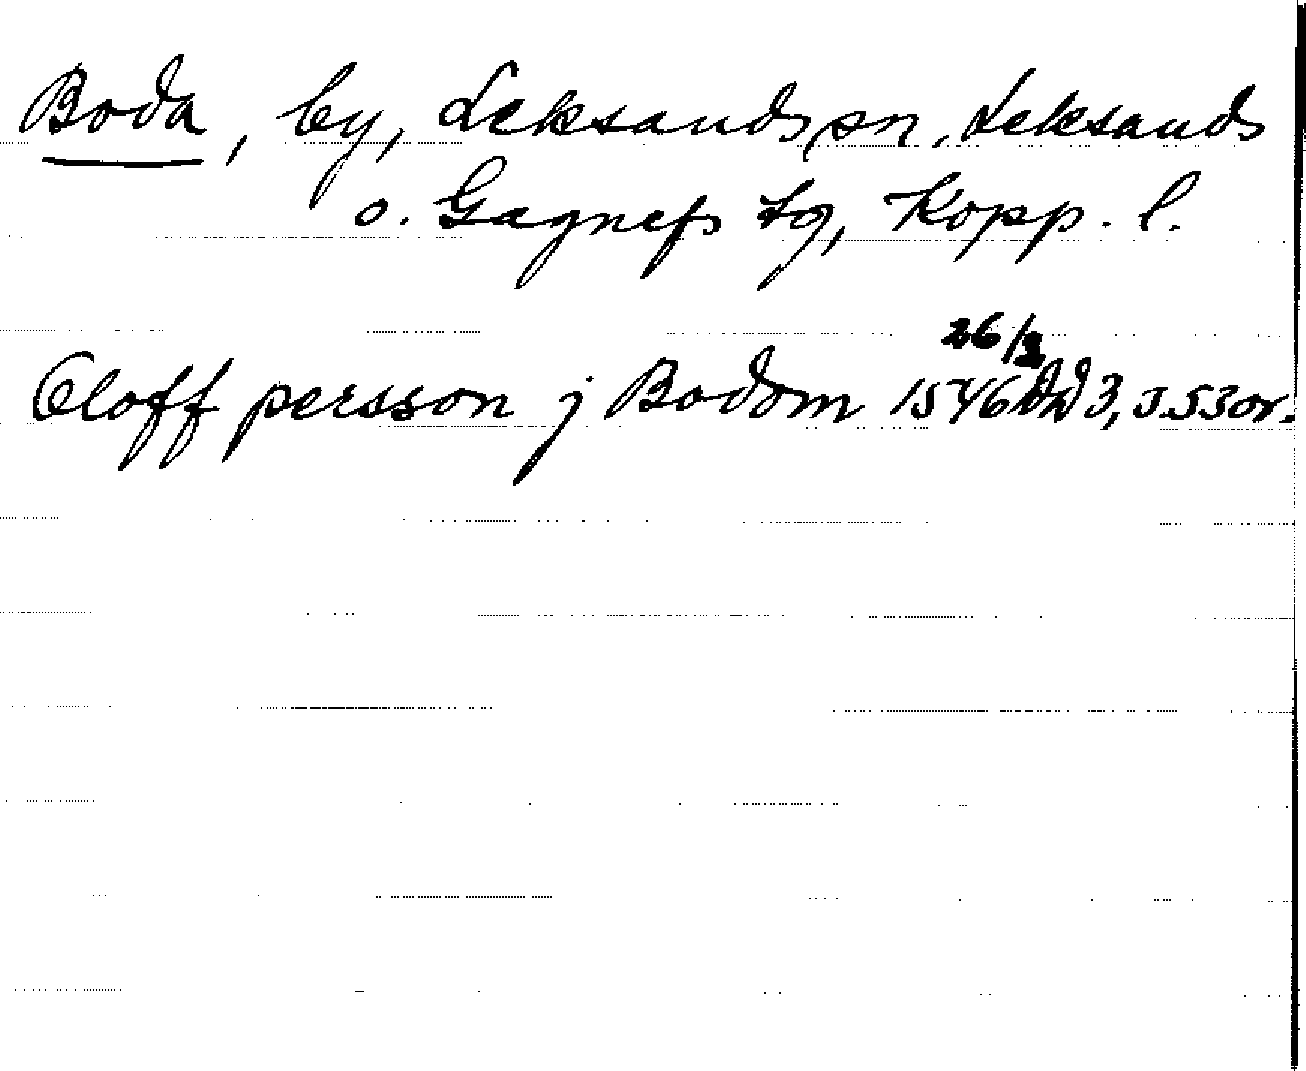 Boda, by, Leksands sn, Leksands
o. Gagnefs tg, Kopp. l.
26/3
Oloff persson j Bodom 1546 DD 3, s. 53 or.